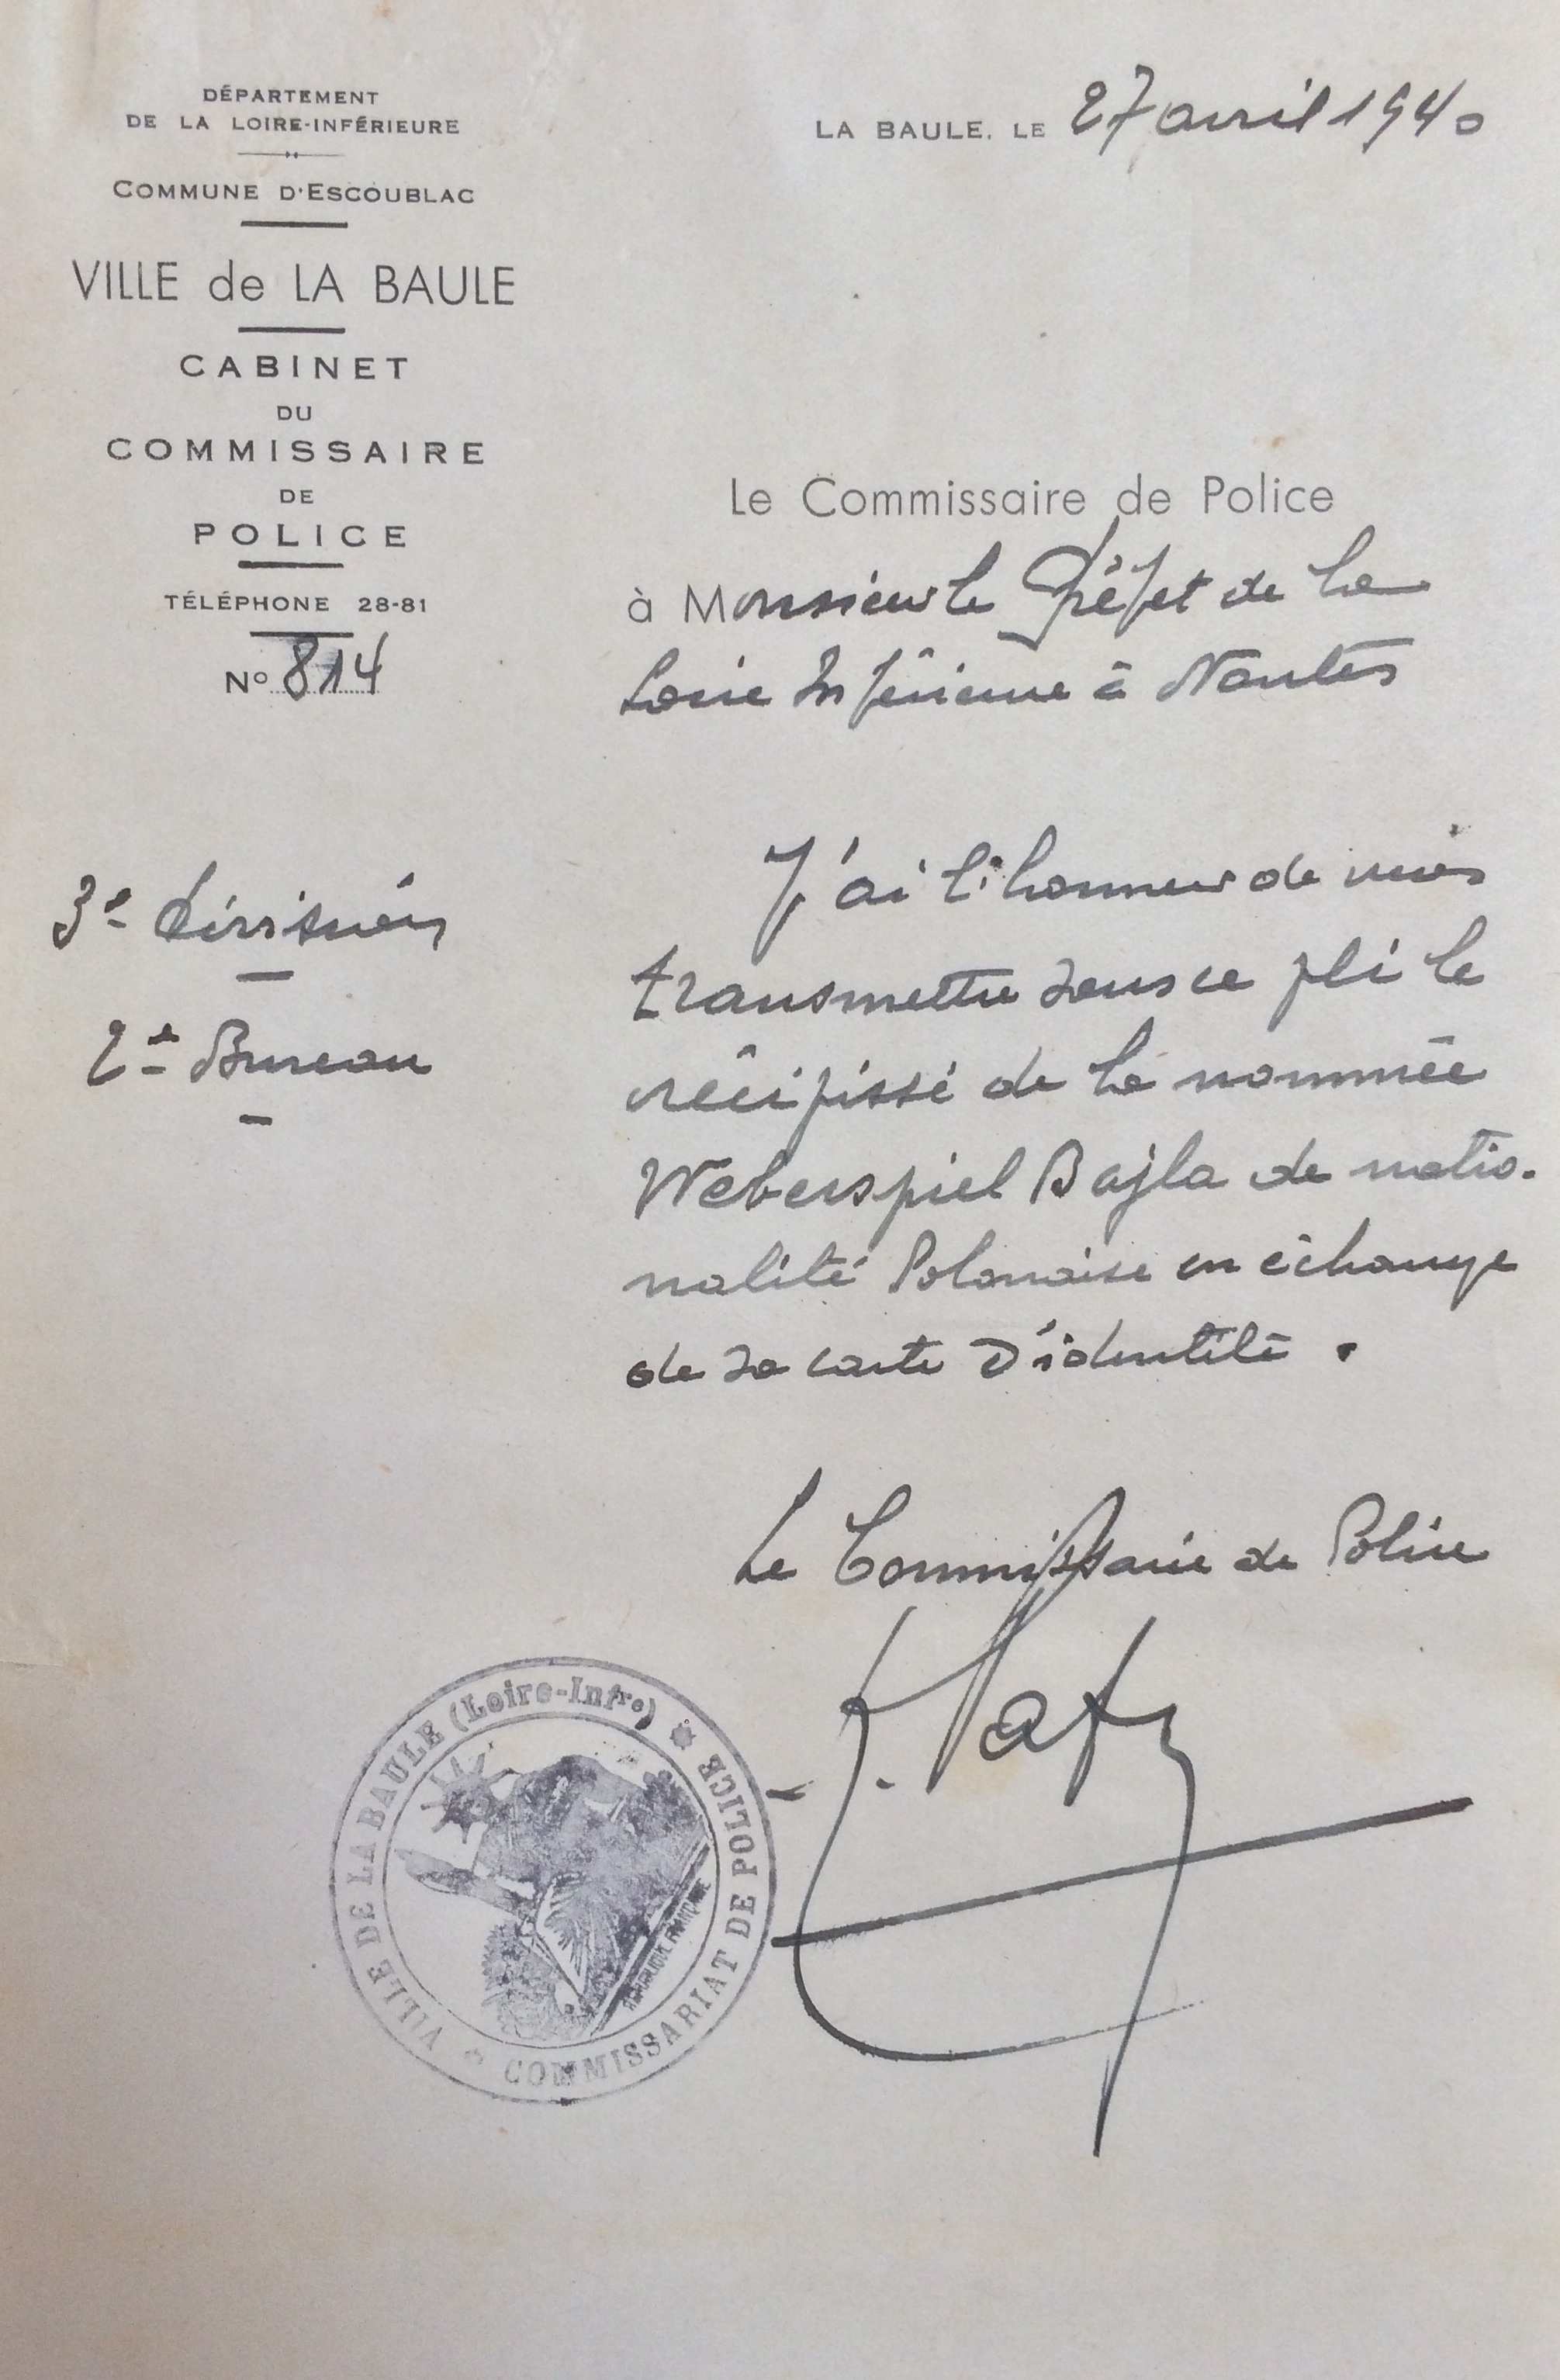 DÉPARTEMENT
DE LA LOIRE-INFÉRIEURE
COMMUNE D'ESCOUBLAC
VILLE de LA BAULE
CABINET
DU
COMMISSAIRE
DE
POLICE
TÉLÉPHONE 28-81
Nº 814
3e division
2e Bureau
LA BAULE, LE 27 avril 1940
Le Commissaire de Police
à Monsieur le Préfet de la
Loire Inférieure à Nantes
J'ai l'honneur de vous
transmettre sous ce pli le
récipissé de la nommée
Weberspiel Bajla de natio-
nalité Polonaise en échange
de sa carte d'identité.
Le Commissaire de Police
VILLE DE LA BAULE (Loire-Infre) * COMMISSARIAT DE POLICE
RÉPUBLIQUE FRANÇAISE